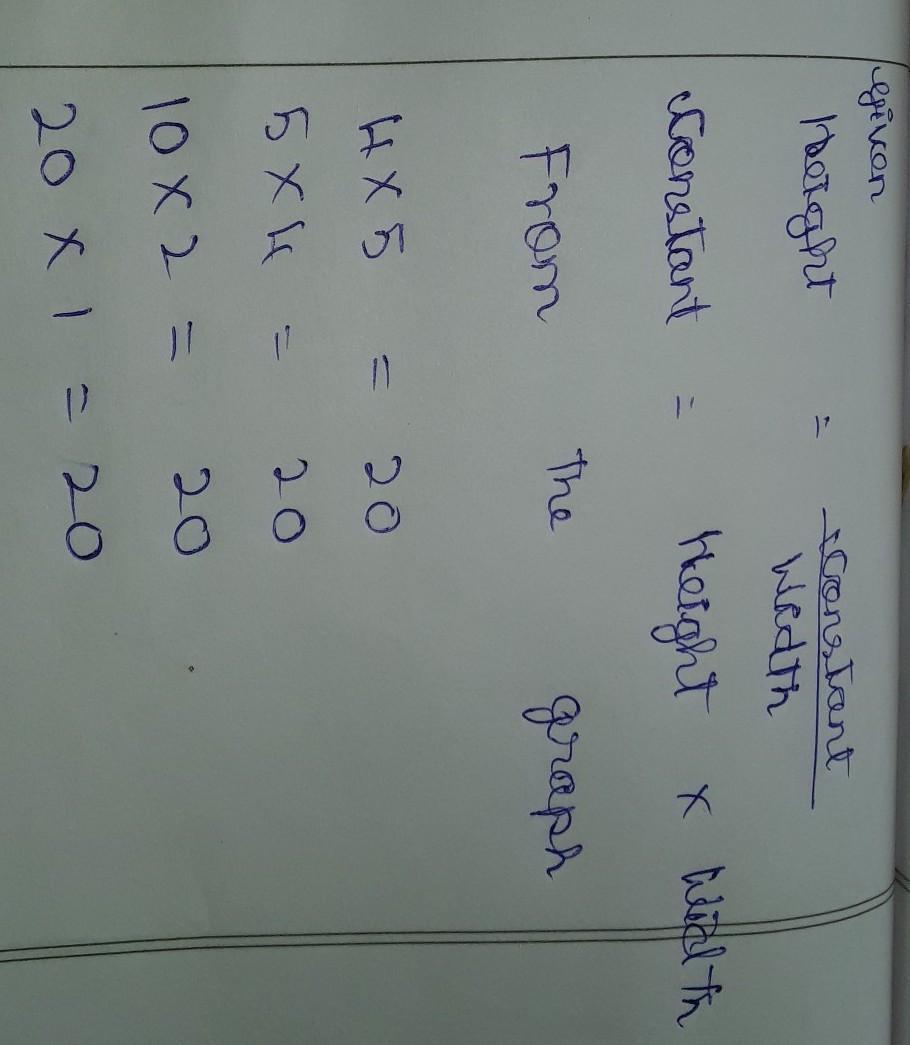 given
Height = Constant
Width
Constant = Height × Width
From the graph
4 × 5 = 20
5 × 4 = 20
10 × 2 = 20
20 × 1 = 20